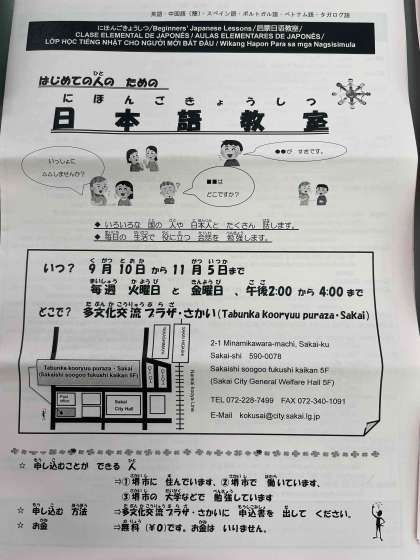 英語・中国語(簡)・スペイン語・ポルトガル語・ベトナム語・タガログ語
にほんごきょうしつ/Beginners' Japanese Lessons/日语教室/
CLASE ELEMENTAL DE JAPONÉS / AULAS ELEMENTARES DE JAPONÊS/
LỚP HỌC TIẾNG NHẬT CHO NGƯỜI MỚI BẮT ĐẦU / Wikang Hapon Para sa mga Nagsisimula
はじめての人の ための
にほんごきょうしつ
日本語教室
いっしょに
△△しませんか?
●●が すきです。
■■は
どこですか?
◆ いろいろな 国の 人や 日本人と たくさん 話します。
◆ 毎日の 生活で 役に立つ 会話を 勉強します。
いつ? 9月10日から 11月5日まで
毎週 火曜日 と 金曜日 、午後2:00 から 4:00 まで
どこで? 多文化交流プラザ・さかい(Tabunka kooryuu puraza・Sakai)
Tabunka kooryuu puraza・Sakai
(Sakaishi soogoo fukushi kaikan 5F)
Post office
Sakai City Hall
Nankai Kooya-Line
2-1 Minamikawara-machi, Sakai-ku
Sakai-shi 590-0078
Sakaishi soogoo fukushi kaikan 5F
(Sakai City General Welfare Hall 5F)
TEL 072-228-7499 FAX 072-340-1091
E-Mail kokusai@city.sakai.lg.jp
☆ 申し込むことが できる 人
⇒①堺市に 住んでいます、②堺市で 働いています、
③堺市の 大学などで 勉強しています
☆ 申し込む 方法 ⇒多文化交流プラザ・さかいに 申込書を 出して ください。
☆ お金 ⇒無料(¥0)です。お金は いりません。